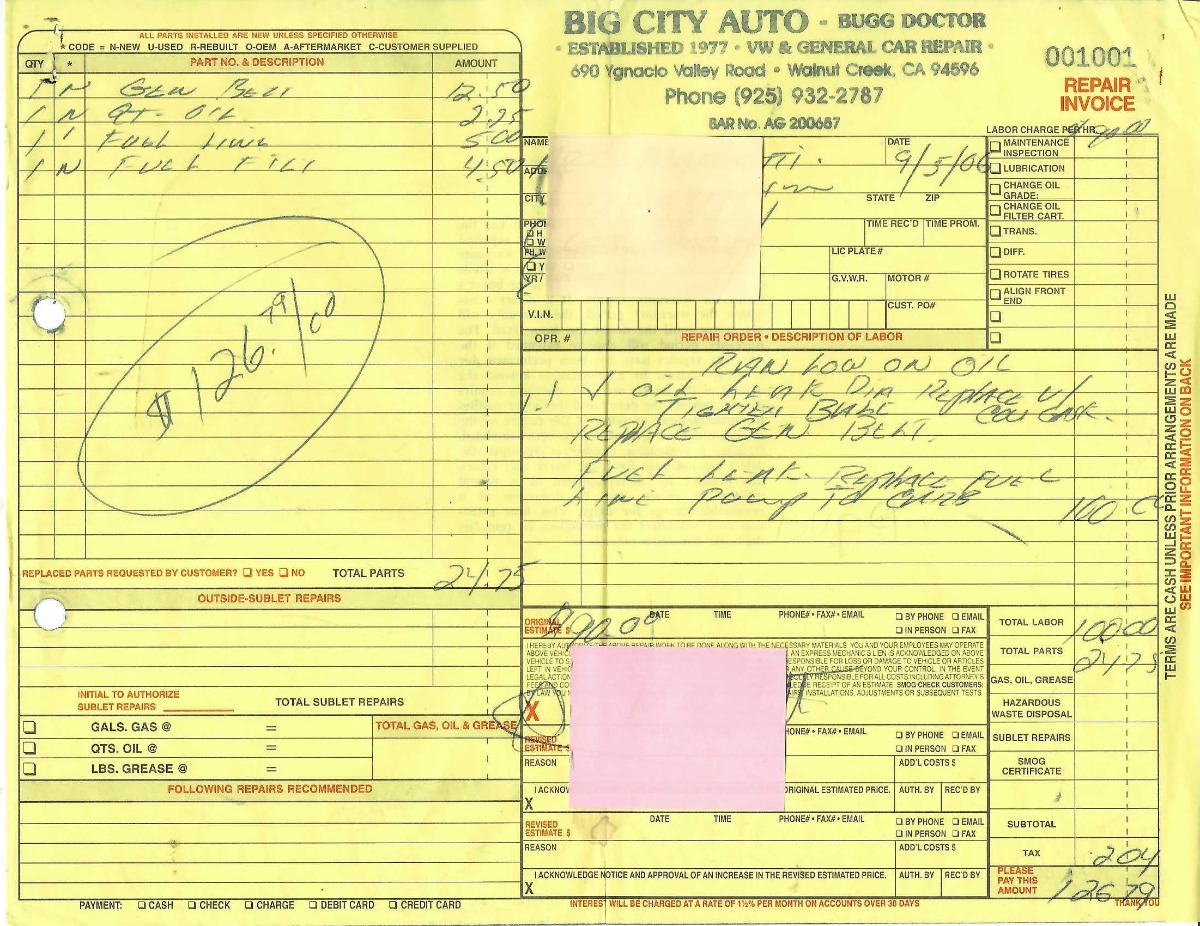 BIG CITY AUTO - BUGG DOCTOR
• ESTABLISHED 1977 • VW & GENERAL CAR REPAIR •
690 Ygnacio Valley Road • Walnut Creek, CA 94596
Phone (925) 932-2787
BAR No. AG 200657
001001
REPAIR
INVOICE
ALL PARTS INSTALLED ARE NEW UNLESS SPECIFIED OTHERWISE
* CODE = N-NEW U-USED R-REBUILT O-OEM A-AFTERMARKET C-CUSTOMER SUPPLIED
QTY * PART NO. & DESCRIPTION AMOUNT
1 N GEN BELT 12.50
1 N QT. OIL 2.75
1 ' FUEL LINE 5 00
1 N FUEL FILT 4.50
$126.79/00
REPLACED PARTS REQUESTED BY CUSTOMER? ☐ YES ☐ NO TOTAL PARTS 24.75
OUTSIDE-SUBLET REPAIRS
INITIAL TO AUTHORIZE
SUBLET REPAIRS
TOTAL SUBLET REPAIRS
☐ GALS. GAS @ = TOTAL GAS, OIL & GREASE
☐ QTS. OIL @ =
☐ LBS. GREASE @ =
FOLLOWING REPAIRS RECOMMENDED
PAYMENT: ☐ CASH ☐ CHECK ☐ CHARGE ☐ DEBIT CARD ☐ CREDIT CARD
NAME
DATE
9/5/06
CITY
STATE ZIP
TIME REC'D TIME PROM.
☐ H
☐ W
☐ Y
LIC PLATE #
G.V.W.R. MOTOR #
V.I.N.
CUST. PO#
LABOR CHARGE PER HR.
☐ MAINTENANCE
INSPECTION
☐ LUBRICATION
☐ CHANGE OIL
GRADE:
☐ CHANGE OIL
FILTER CART.
☐ TRANS.
☐ DIFF.
☐ ROTATE TIRES
☐ ALIGN FRONT
END
OPR. # REPAIR ORDER • DESCRIPTION OF LABOR
RAN LOW ON OIL
1.1 √ OIL LEAK REPLACE W/
TIGHTEN
REPLACE GEN BELT.
FUEL LEAK. REPLACE FUEL
LINE PUMP TO CARB 100.00
ORIGINAL
ESTIMATE $ $90.00
DATE TIME PHONE# • FAX# • EMAIL ☐ BY PHONE ☐ EMAIL
☐ IN PERSON ☐ FAX
I HEREBY AUTHORIZE THE ABOVE REPAIR WORK TO BE DONE ALONG WITH THE NECESSARY MATERIALS. YOU AND YOUR EMPLOYEES MAY OPERATE
ABOVE VEHICL AN EXPRESS MECHANIC'S LIEN IS ACKNOWLEDGED ON ABOVE
VEHICLE TO S ESPONSIBLE FOR LOSS OR DAMAGE TO VEHICLE OR ARTICLES
LEFT IN VEHICL ANY OTHER CAUSE BEYOND YOUR CONTROL. IN THE EVENT
LEGAL ACTION LY RESPONSIBLE FOR ALL COSTS INCLUDING ATTORNEY'S
FEE AND CO LEDGE RECEIPT OF AN ESTIMATE. SMOG CHECK CUSTOMERS:
BY LAW YOU M IRS, INSTALLATIONS, ADJUSTMENTS OR SUBSEQUENT TESTS
X
REVISED
ESTIMATE $
HONE# • FAX# • EMAIL ☐ BY PHONE ☐ EMAIL
☐ IN PERSON ☐ FAX
REASON ADD'L COSTS $
I ACKNOW ORIGINAL ESTIMATED PRICE. AUTH. BY REC'D BY
X
REVISED
ESTIMATE $
DATE TIME PHONE# • FAX# • EMAIL ☐ BY PHONE ☐ EMAIL
☐ IN PERSON ☐ FAX
REASON ADD'L COSTS $
I ACKNOWLEDGE NOTICE AND APPROVAL OF AN INCREASE IN THE REVISED ESTIMATED PRICE. AUTH. BY REC'D BY
X
INTEREST WILL BE CHARGED AT A RATE OF 1½% PER MONTH ON ACCOUNTS OVER 30 DAYS
TOTAL LABOR 100 00
TOTAL PARTS 24 75
GAS, OIL, GREASE
HAZARDOUS
WASTE DISPOSAL
SUBLET REPAIRS
SMOG
CERTIFICATE
SUBTOTAL
TAX 2 04
PLEASE
PAY THIS
AMOUNT 126 79
THANK YOU
TERMS ARE CASH UNLESS PRIOR ARRANGEMENTS ARE MADE
SEE IMPORTANT INFORMATION ON BACK